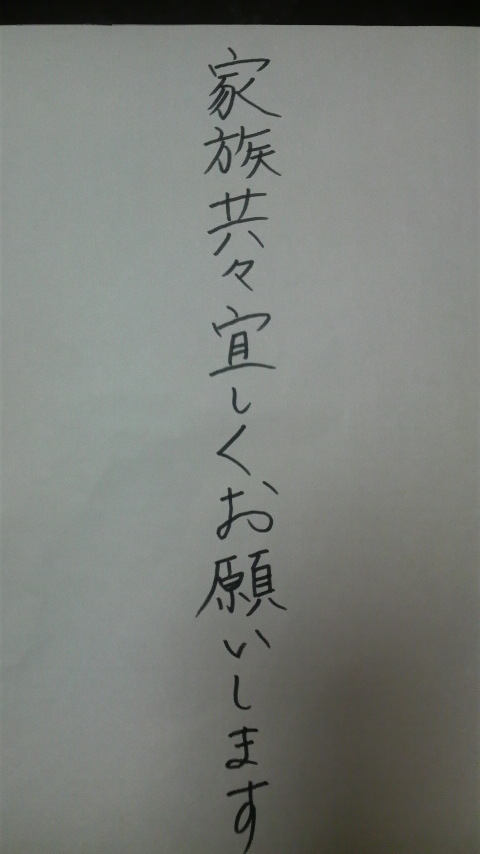 家族共々宜しくお願いします